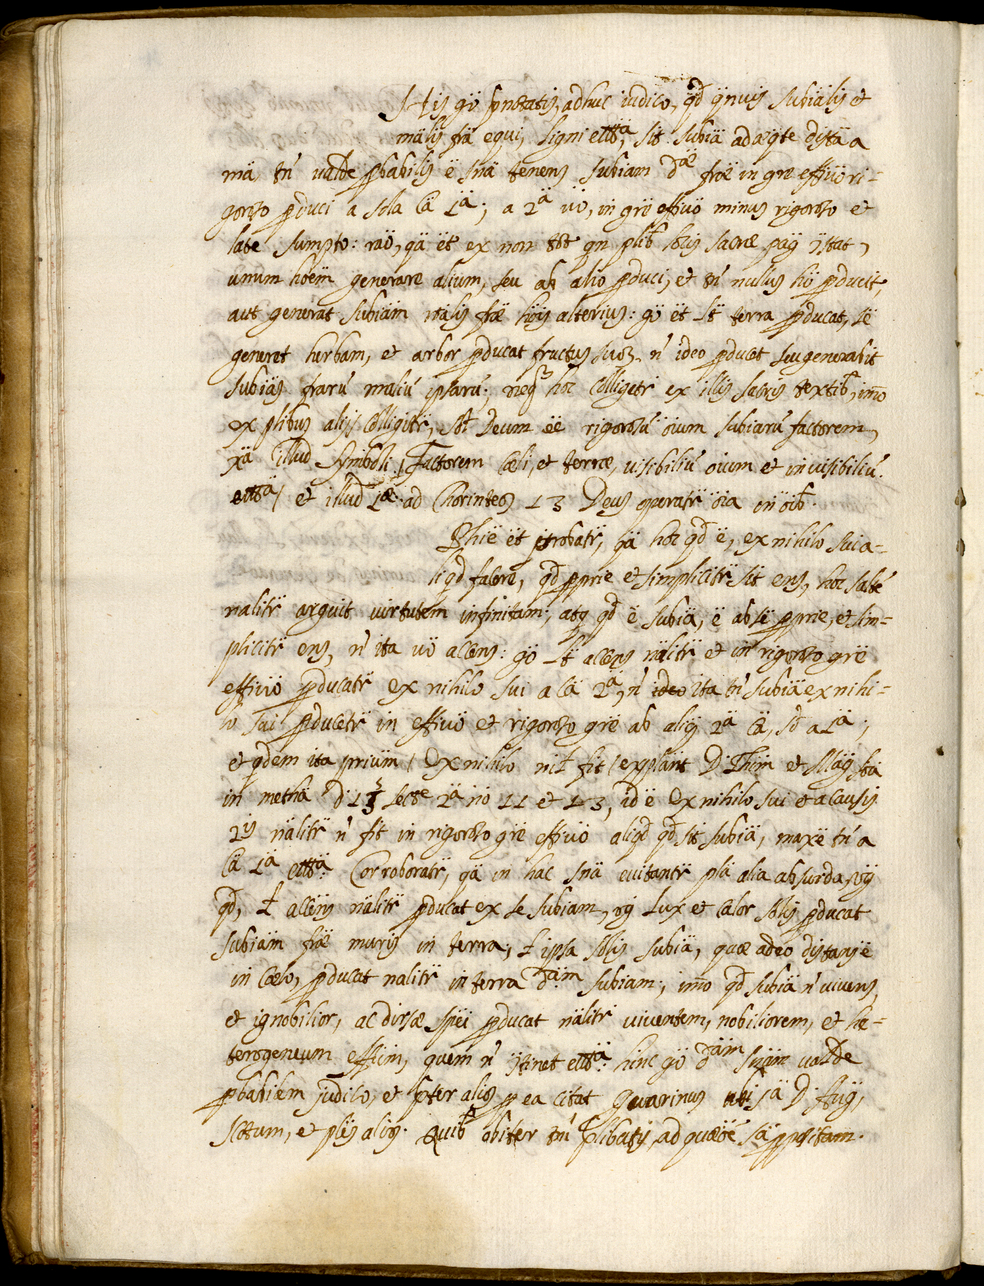 His gö adhuc iudico, qd qnuis subiälis et
mälis frä equi, ligni että, sit subiä adæqte distä a
mä, tn̄ valde pbabilis ë snä tenens subiam dæ fræ in gre effiuö ri-
goroso pduci a sola cä 1ä; a 2ä uö, in grë effiuö minus rigoroso et
late sumpto: raö, qä ët ex non tot gn plib locis sacræ pag
unum hoëm generare alium, seu ab alio pduci, et tn̄ nullus hö pducit,
aut generat subiäm nalis fræ hoïs alterius: gö ët st terra pducat, se
generet herbam, et arbor pducat fructus suos, n̄ ideo pducet seu generabit
subiäs fraru maliu ipsaru; neq hoc colligetr ex illis sacris textib, imo
ex plibus alijs colligitr, st Deum ëe rigorosu öium subiaru factorem,
illud Symboli, Factorem cæli, et terræ, visibiliu öium et invisibiliu
että/ et illud 1æ ad Chorinteos 13 Deus operatr öia in öib.
ët probatr, qä hoc qd ë, ex nihilo sui a-
liqd facere, qd pprie et simplicitr sit ens, hoc saltë
nalitr arguit virtutem infinitam; atq qd ë subiä, ë ab se pprie, et sim-
plicitr ens, n̄ ita uö accens: gö st accens nälitr et in rigoroso grë
effiuö pducatr ex nihilo sui a cä 2ä, n̄ ideo ita tn̄ subiä ex nihi-
lo sui pducetr in effiuö et rigoroso gre ab aliq 2ä cä, sd a 1ä;
et qdem ita priüm (Ex nihilo nil fit) explänt D Thom et Mag
in metha d 13 2ä no 11 et 13, id ë Ex nihilo sui et a causis
2is nälitr n̄ fit in rigoroso gre effiuö aliqd qd sit subiä, maxë tn̄ a
cä 1ä että. Corroboratr, qä in hac snä evitantr plä alia absurda,
qd, accëns nälitr pducat ex se subiam, Lux et calor solis pducat
subiäm fræ muris in terra, ł ipsa solis subiä, quæ adeo distans ë
in cælo, pducat nalitr in terra däm subiam; imo qd subiä n̄ vivens,
et ignobilior, ac dirsæ speï pducat nälitr viventem, nobiliorem, et he-
terogeneum effëm, quem n̄ ötinet että. hinc gö däm snäm valde
pbabilem judico, et pter alios p ea citat Guarinus ubi sä D. Aug,
Scotum, et ples alios. Quib obiter tn̄ plibatis, ad quæöë sä ppositam.